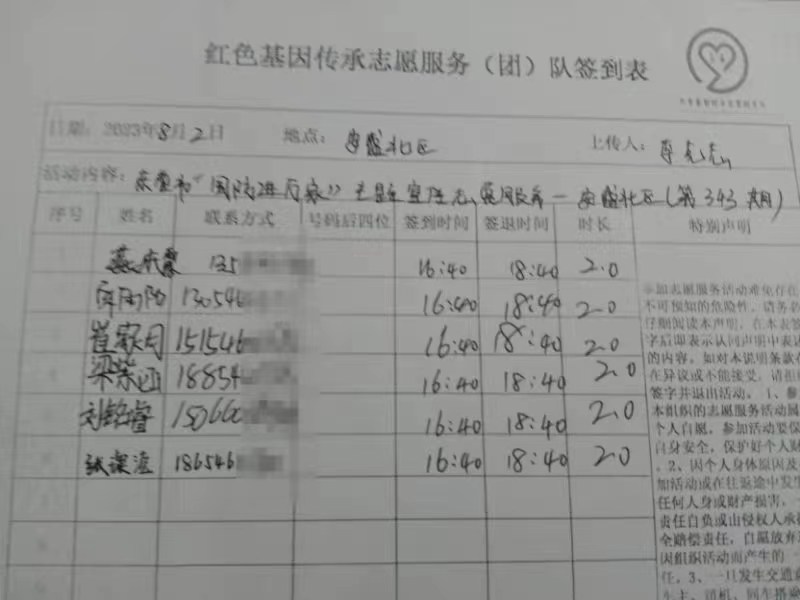 红色基因传承志愿服务（团）队签到表
日期：2023年8月2日 地点：安盛北区 上传人：
活动内容：东营市“国防进万家”主题宣传志愿服务－安盛北区（第343期）
序号 姓名 联系方式 号码后四位 签到时间 签退时间 时长 特别声明
135 16:40 18:40 2.0
130546 16:40 18:40 2.0
崔家 151546 16:40 18:40 2.0
梁 18854 16:40 18:40 2.0
刘铭睿 150660 16:40 18:40 2.0
张 186546 16:40 18:40 2.0
※如志愿服务活动难免存在
不可预知的危险性，请务必
仔细阅读本声明，在本表签
字后即表示认同声明中表述
的内容，如对本说明条款存
在异议或不能接受，请拒绝
签字并退出活动。1、参
本组织的志愿服务活动属
个人自愿，参加活动要保
自身安全，保护好个人财
。2、因个人身体原因及
加活动或在往返途中发生
任何人身或财产损害，一
责任自负或由侵权人承担
全赔偿责任，自愿放弃
因组织活动而产生的一
任。3、一旦发生交通意
车主、司机、同车搭乘